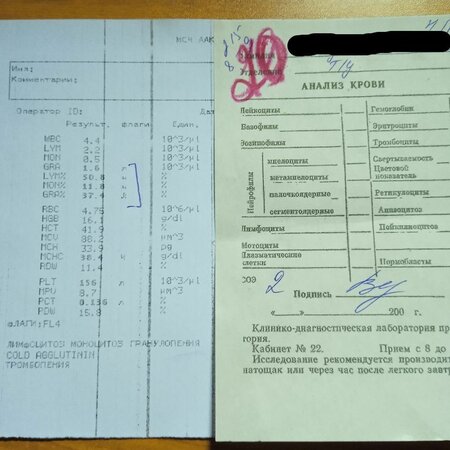 МСЧ ААК
Имя:
Комментарии:
Оператор ID:
Результ. Флаги Един.
WBC 4.4 10^3/µl
LYM 2.2 10^3/µl
MON 0.5 10^3/µl
GRA 1.6 10^3/µl
LYM% 50.8 %
MON% 11.8 %
GRA% 37.4 %
RBC 4.75 10^6/µl
HGB 16.1 g/dl
HCT 41.9 %
MCV 88.2 µm^3
MCH 33.9 pg
MCHC 38.4 g/dl
RDW 11.4 %
PLT 156 10^3/µl
MPV 8.7 µm^3
PCT 0.136 %
PDW 15.8 %
ФЛАГИ:FL4
ЛИМФОЦИТОЗ МОНОЦИТОЗ ГРАНУЛОПЕНИЯ
COLD AGGLUTININ
ТРОМБОПЕНИЯ
Отделение
АНАЛИЗ КРОВИ
Лейкоциты Гемоглобин
Базофилы Эритроциты
Эозинофилы Тромбоциты
Нейрофилы
миелоциты Свертываемость
метамиелоциты Цветовой показатель
палочкоядерные Ретикулоциты
сегментоядерные Анизоцитоз
Лимфоциты Пойкилоцитоз
Моноциты
Плазматические клетки Нормобласты
СОЭ 2
Подпись
«___» 200 г.
Клинико-диагностическая лаборатория пр
гория.
Кабинет № 22. Прием с 8 до
Исследование рекомендуется производит
натощак или через час после легкого завтр